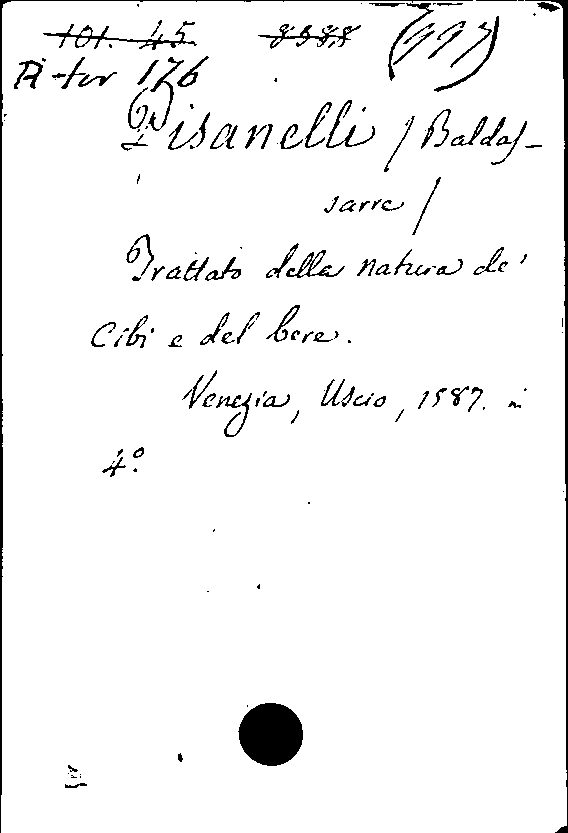 101. 45. 8388 (997)
A-ter 176
Pisanelli / Baldas-
sarre /
Trattato della natura de'
Cibi e del bere.
Venezia, Uscio, 1587. in
4º